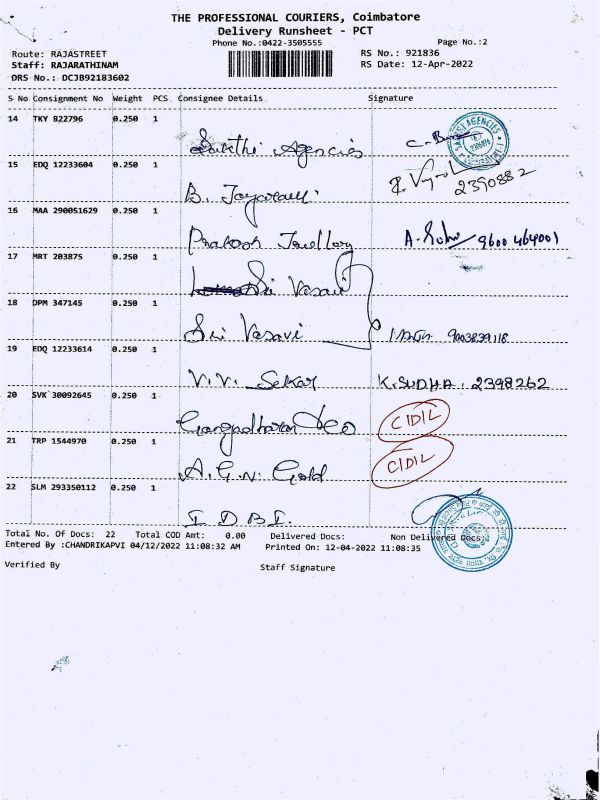 THE PROFESSIONAL COURIERS, Coimbatore
Delivery Runsheet - PCT
Phone No.:0422-3505555 Page No.:2
Route: RAJASTREET RS No.: 921836
Staff: RAJARATHINAM RS Date: 12-Apr-2022
DRS No.: DCJB92183602
S No Consignment No Weight PCS Consignee Details Signature
14 TKY 822796 0.250 1
Sakthi Agencies
15 EDQ 12233604 0.250 1
B. Jayaraull 2390882
16 MAA 290051629 0.250 1
Prakash Jewllery 9600 464001
17 MRT 203875 0.250 1
Sri Vasavi
18 DPM 347145 0.250 1
Sri Vasavi 9003839118
19 EDQ 12233614 0.250 1
V.V. Sekar K.SUDHA. 2398262
20 SVK 30092645 0.250 1
Gangadharan &co CIDIL
21 TRP 1544970 0.250 1
A.G.N. Gold CIDIL
22 SLM 293350112 0.250 1
I D B I.
Total No. Of Docs: 22 Total COD Amt: 0.00 Delivered Docs: Non Delivered Docs:
Entered By :CHANDRIKAPVI 04/12/2022 11:08:32 AM Printed On: 12-04-2022 11:08:35
Verified By Staff Signature